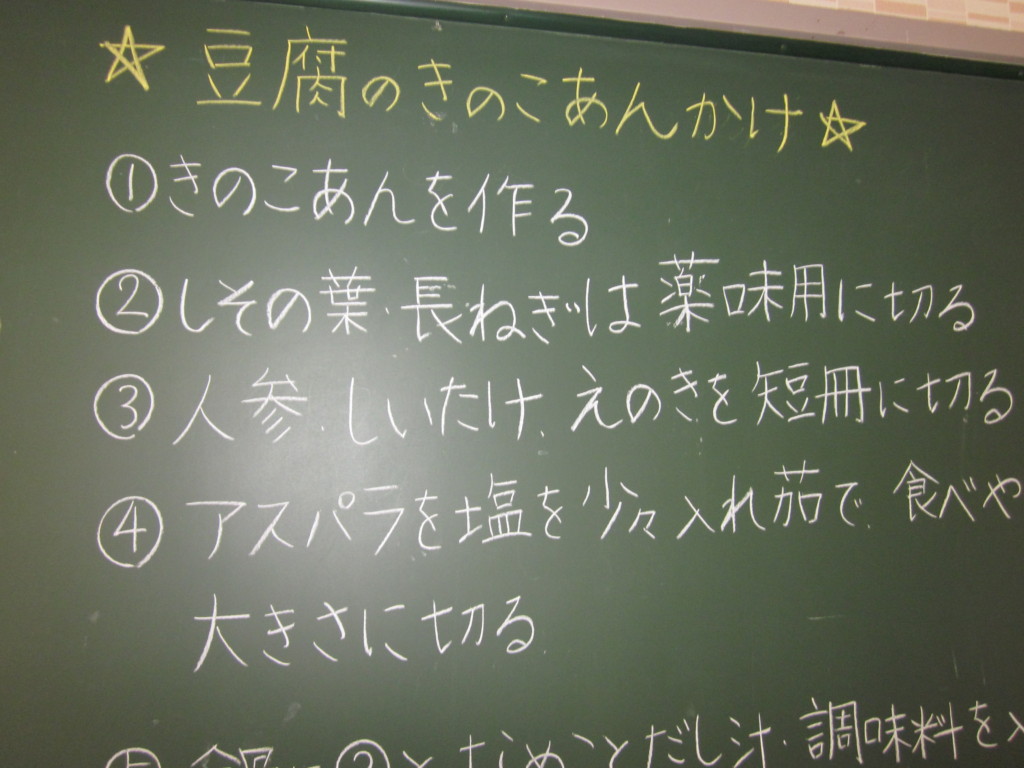 ☆豆腐のきのこあんかけ☆
①きのこあんを作る
②しその葉・長ねぎは薬味用に切る
③人参、しいたけ、えのきを短冊に切る
④アスパラを塩を少々入れ茹で、食べや
大きさに切る
⑤鍋に③となめことだし汁・調味料を入